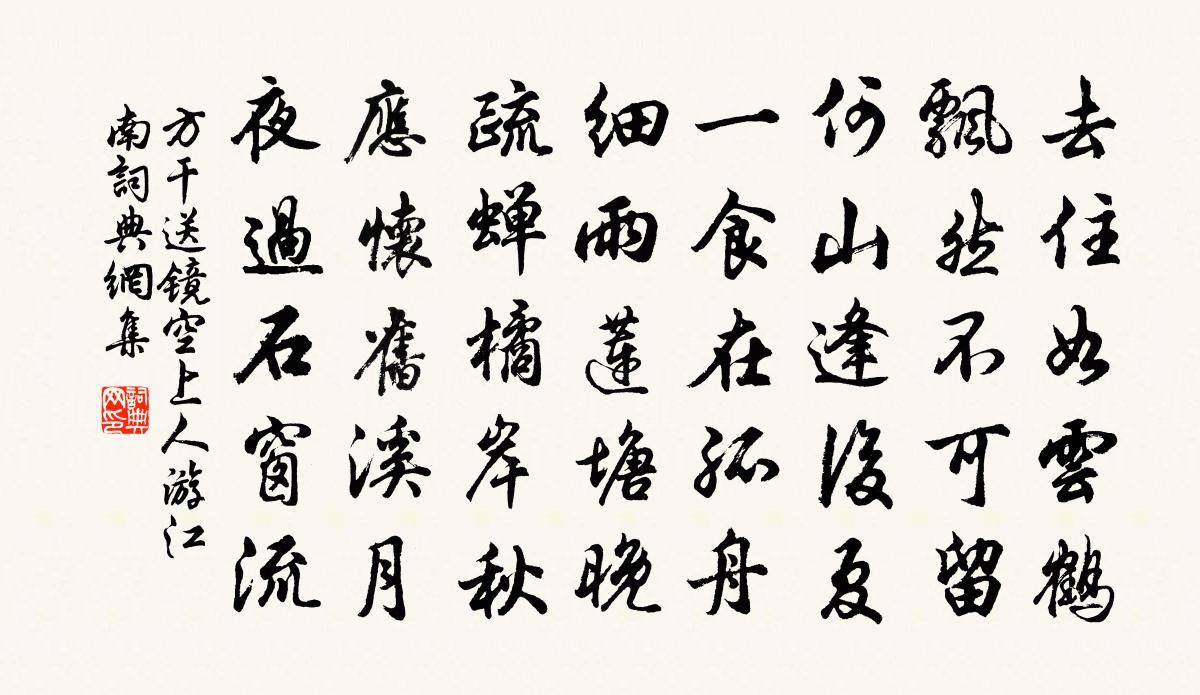 去住如雲鶴
飄然不可留
何山逢後夏
一食在孤舟
細雨蓮塘晚
疏蝉橘岸秋
應懷舊溪月
夜過石窗流
方干送鏡空上人游江
南詞典網集
詞典网印